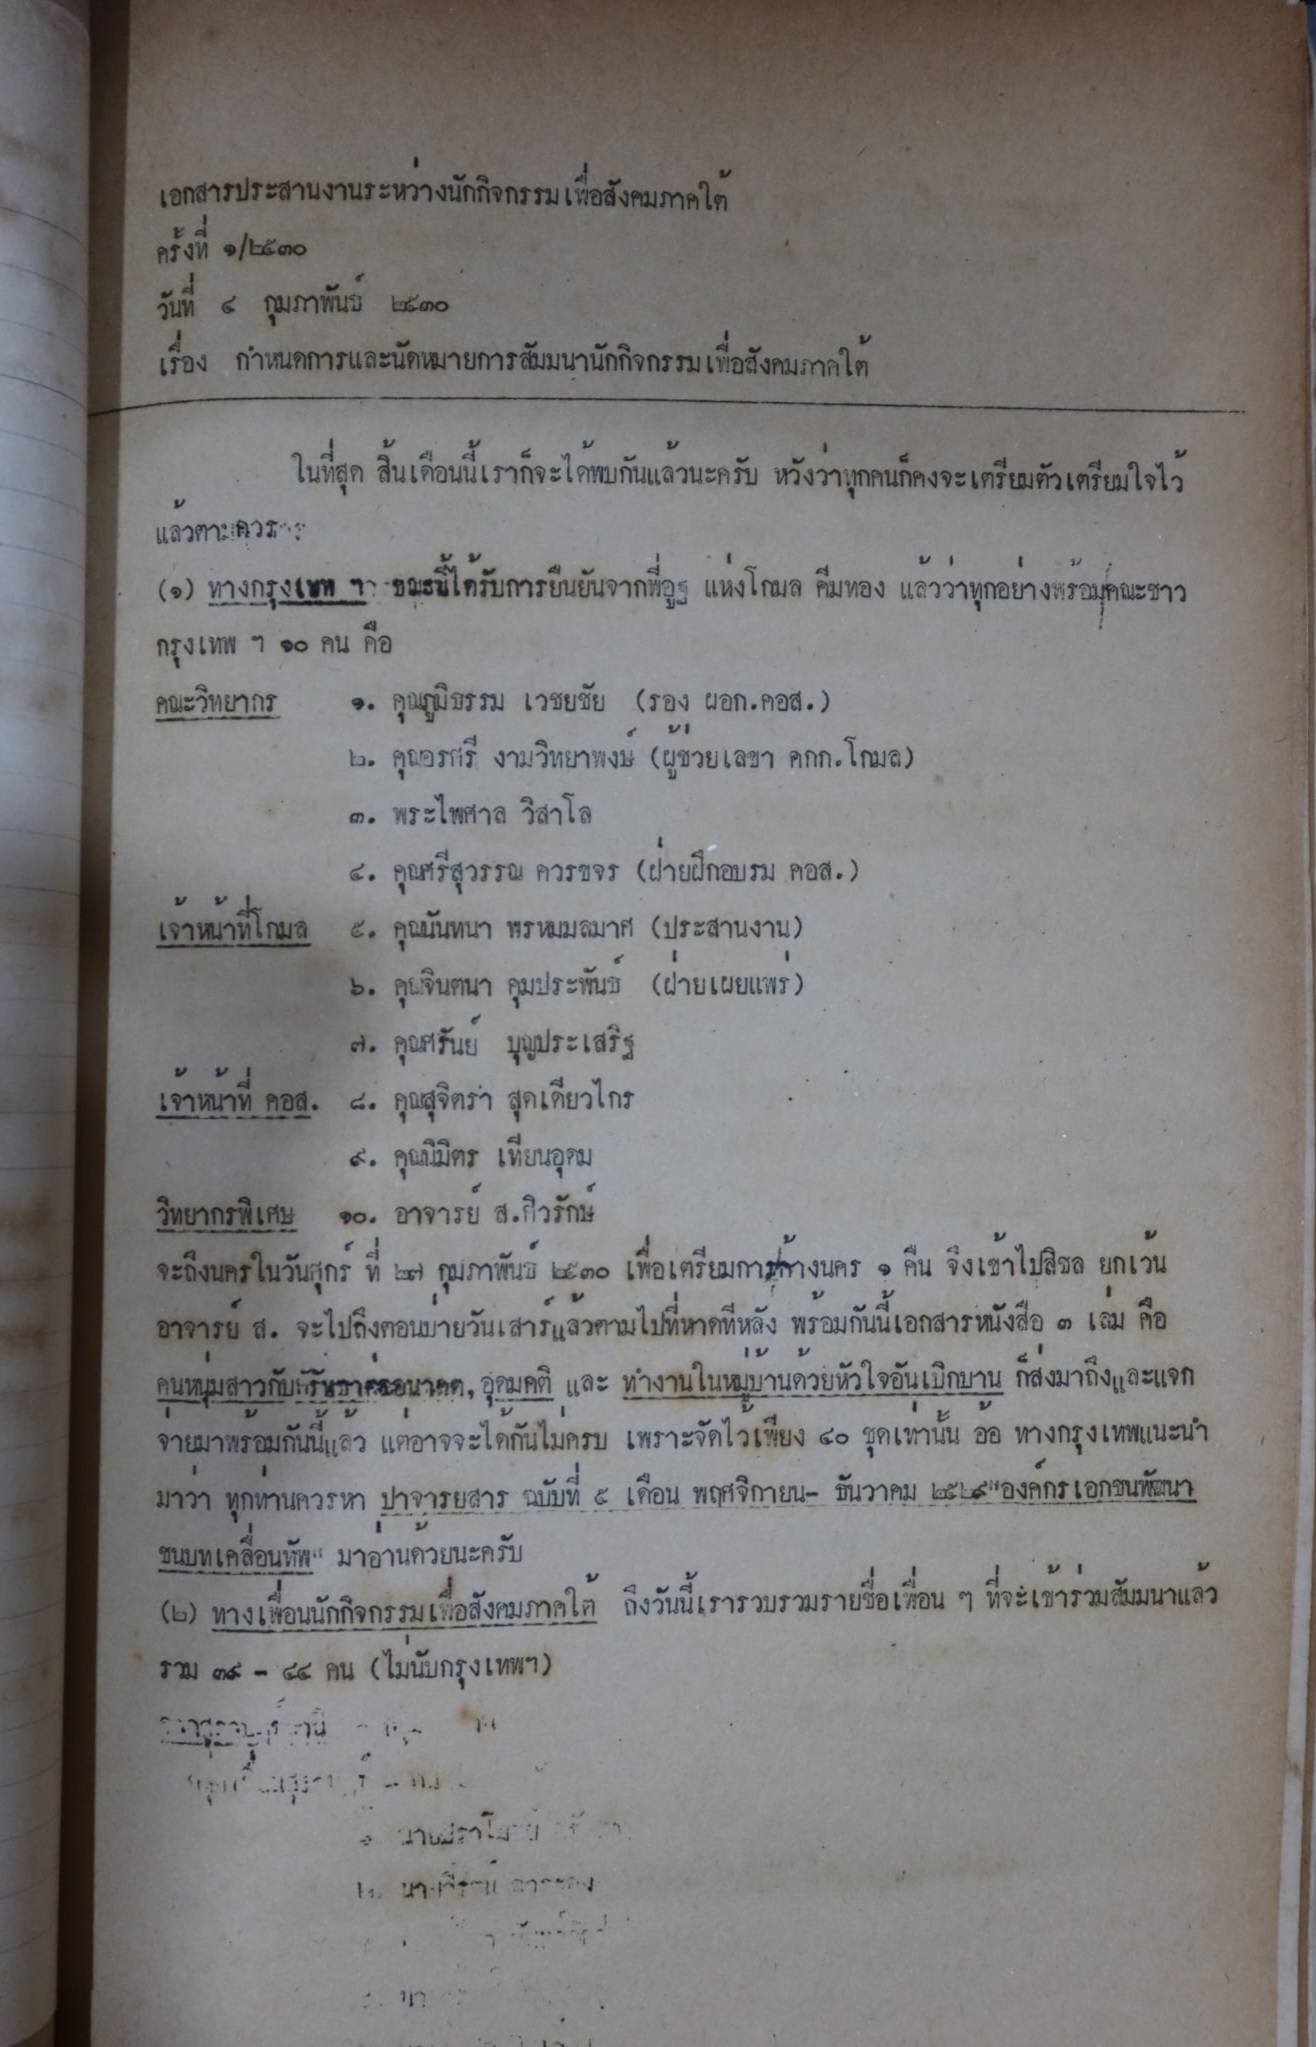 เอกสารประสานงานระหว่างนักกิจกรรมเพื่อสังคมภาคใต้
ครั้งที่ ๑/๒๕๓๐
วันที่ ๔ กุมภาพันธ์ ๒๕๓๐
เรื่อง กำหนดการและนัดหมายการสัมมนานักกิจกรรมเพื่อสังคมภาคใต้
ในที่สุด สิ้นเดือนนี้เราก็จะได้พบกันแล้วนะครับ หวังว่าทุกคนก็คงจะเตรียมตัวเตรียมใจไว้
แล้วตามควร
(๑) ทางกรุงเทพ ฯ ขณะนี้ได้รับการยืนยันจากพี่อูฐ แห่งโกมล คีมทอง แล้วว่าทุกอย่างพร้อมคณะชาว
กรุงเทพ ฯ ๑๐ คน คือ
คณะวิทยากร ๑. คุณภูมิธรรม เวชยชัย (รอง ผอก.คอส.)
๒. คุณอรศรี งามวิทยาพงษ์ (ผู้ช่วยเลขา คกก.โกมล)
๓. พระไพศาล วิสาโล
๔. คุณศรีสุวรรณ ควรขจร (ฝ่ายฝึกอบรม คอส.)
เจ้าหน้าที่โกมล ๕. คุณนันทนา พรหมมลมาศ (ประสานงาน)
๖. คุณจินตนา คุมประพันธ์ (ฝ่ายเผยแพร่)
๗. คุณศรันย์ บุญประเสริฐ
เจ้าหน้าที่ คอส. ๘. คุณสุจิตรา สุดเดียวไกร
๙. คุณนิมิตร เทียนอุดม
วิทยากรพิเศษ ๑๐. อาจารย์ ส.ศิวรักษ์
จะถึงนครในวันศุกร์ ที่ ๒๗ กุมภาพันธ์ ๒๕๓๐ เพื่อเตรียมการค้างนคร ๑ คืน จึงเข้าไปสิชล ยกเว้น
อาจารย์ ส. จะไปถึงตอนบ่ายวันเสาร์แล้วตามไปที่หาดทีหลัง พร้อมกันนี้เอกสารหนังสือ ๓ เล่ม คือ
คนหนุ่มสาวกับอนาคต, อุดมคติ และ ทำงานในหมู่บ้านด้วยหัวใจอันเบิกบาน ก็ส่งมาถึงและแจก
จ่ายมาพร้อมกันนี้แล้ว แต่อาจจะได้กันไม่ครบ เพราะจัดไว้เพียง ๔๐ ชุดเท่านั้น อ้อ ทางกรุงเทพแนะนำ
มาว่า ทุกท่านควรหา ปาจารยสาร ฉบับที่ ๕ เดือน พฤศจิกายน- ธันวาคม ๒๕๒๙ "องค์กรเอกชนพัฒนา
ชนบทเคลื่อนทัพ" มาอ่านด้วยนะครับ
(๒) ทางเพื่อนนักกิจกรรมเพื่อสังคมภาคใต้ ถึงวันนี้เรารวบรวมรายชื่อเพื่อน ๆ ที่จะเข้าร่วมสัมมนาแล้ว
รวม ๓๙ - ๔๔ คน (ไม่นับกรุงเทพฯ)